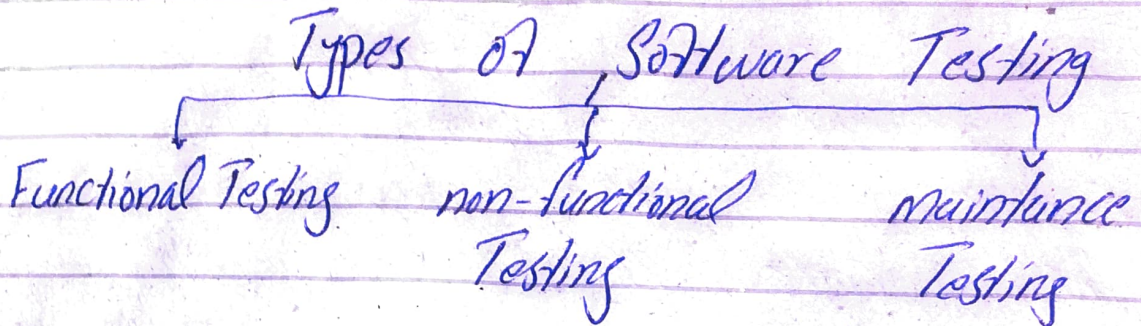 Types of Software Testing
Functional Testing non-functional maintance
Testing Testing